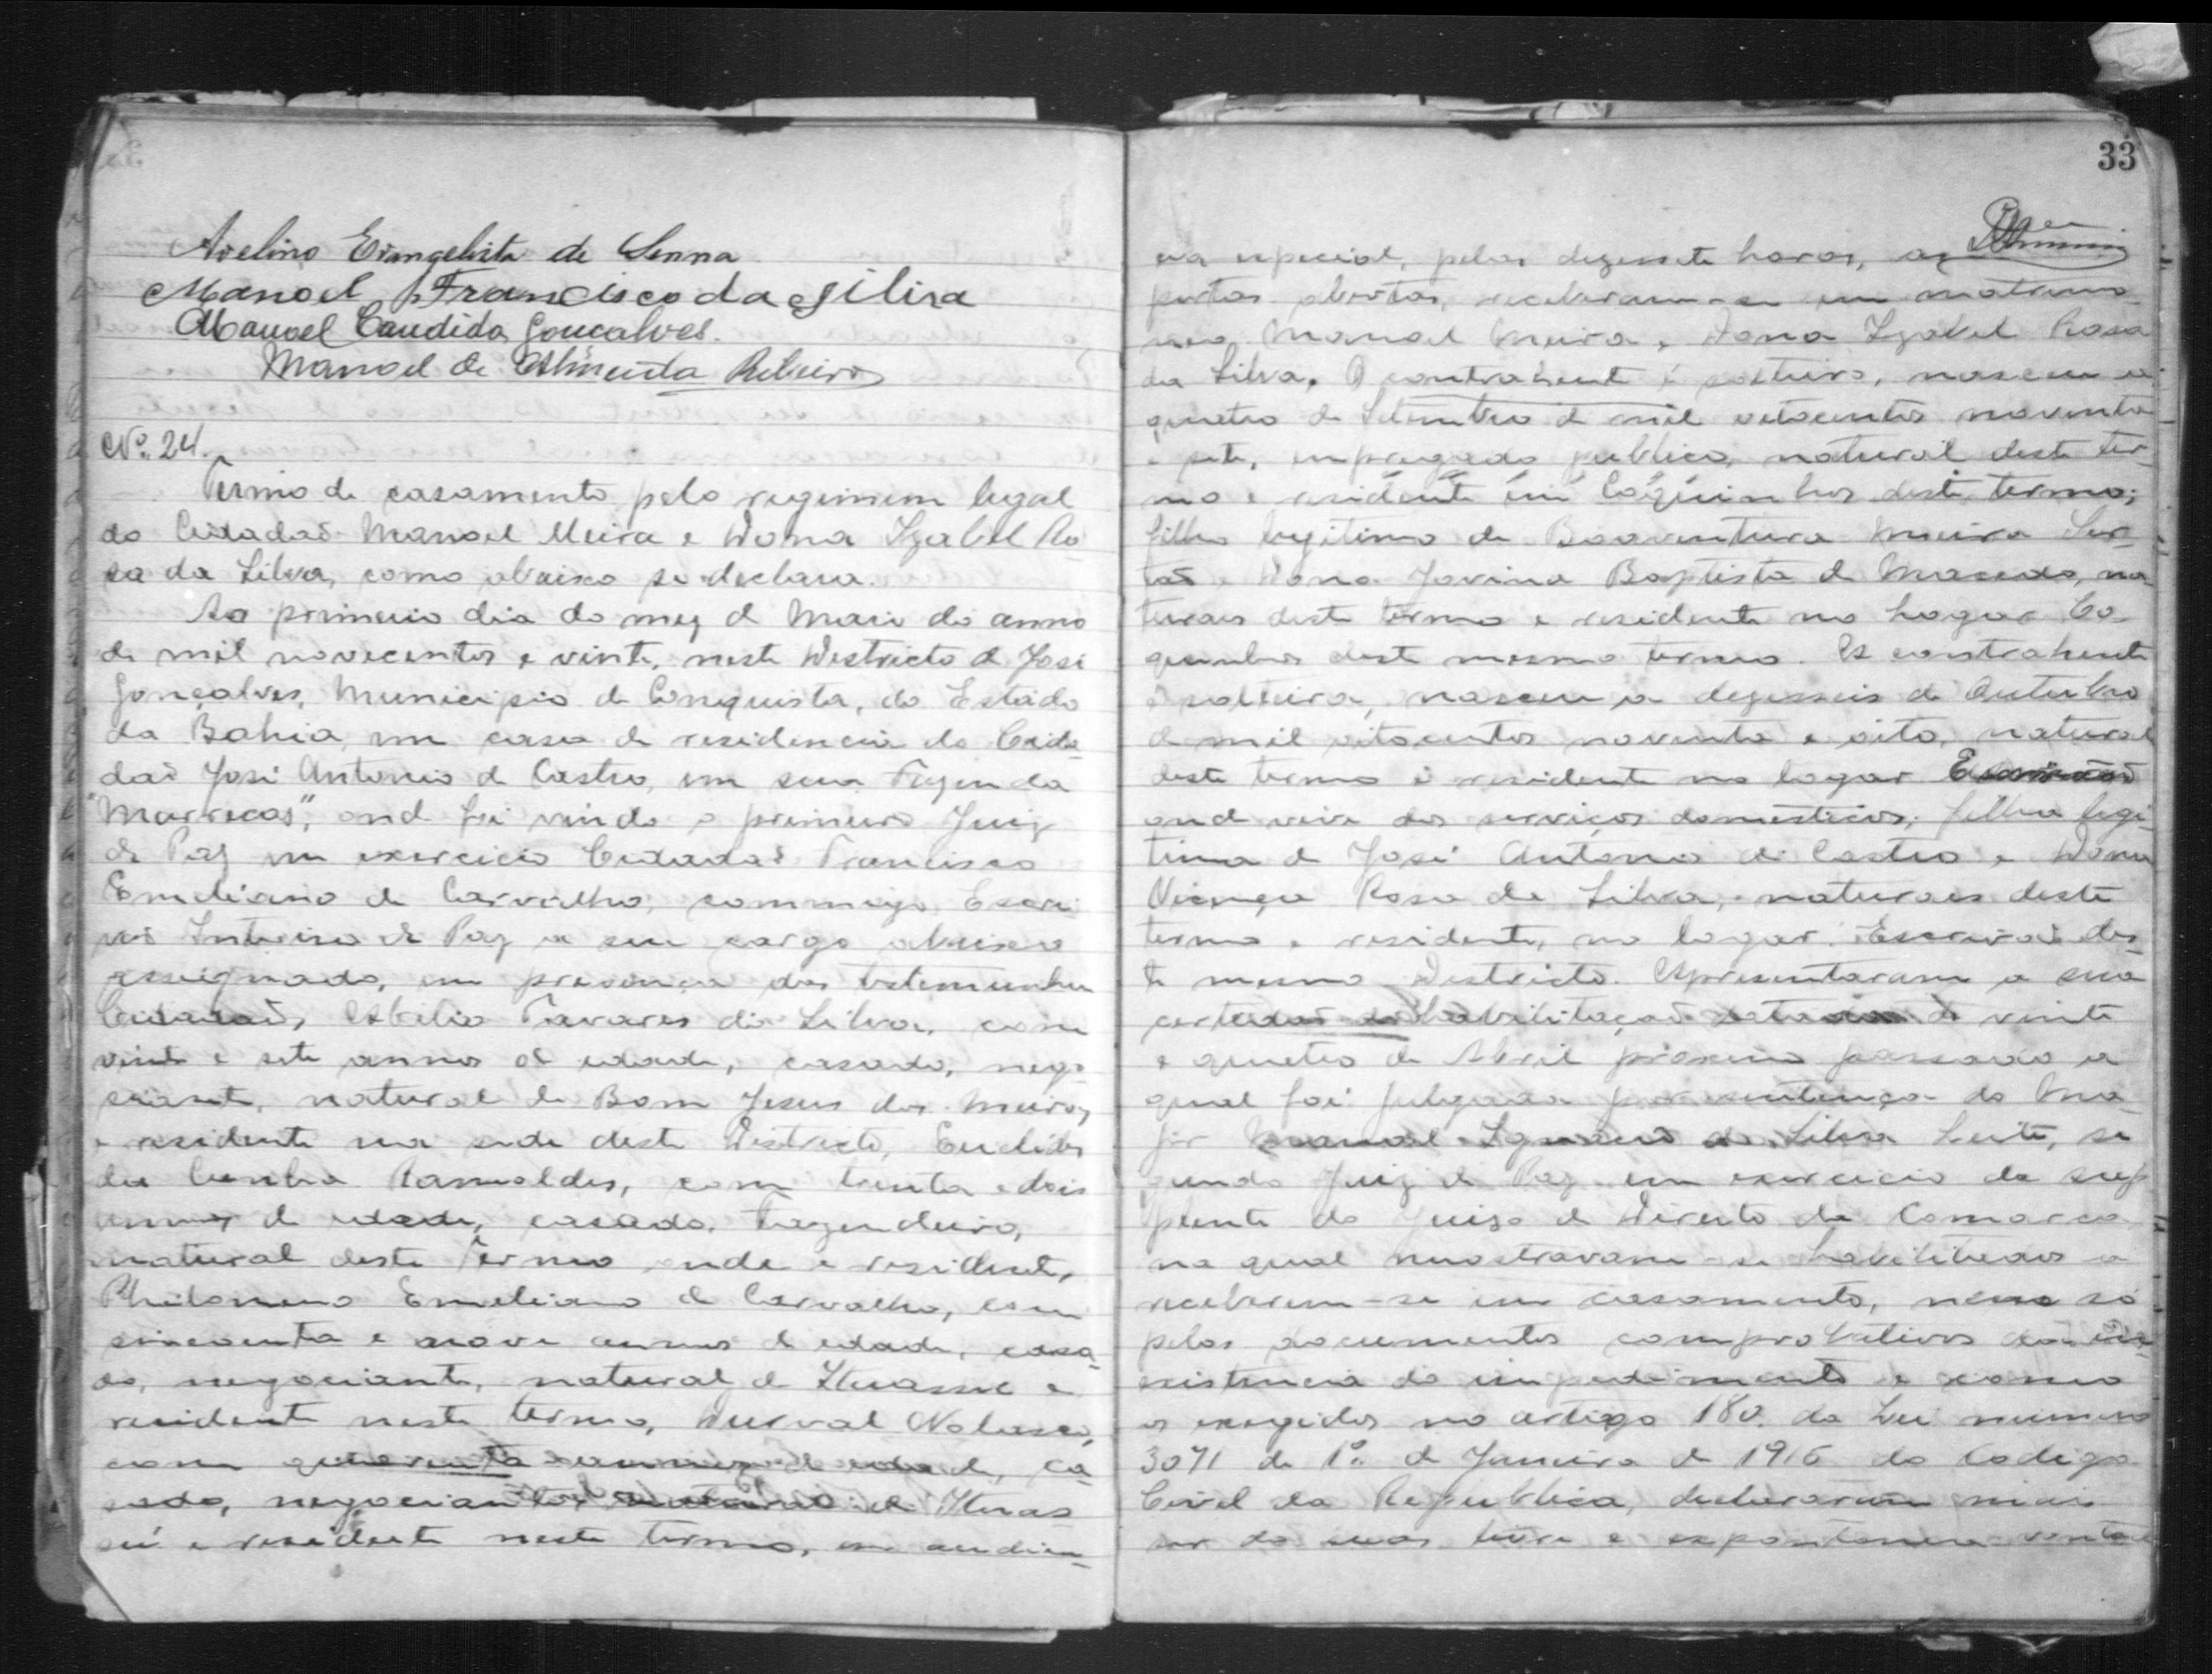 Avelino Evangelista de Senna
Manoel Francisco da Silira
Manoel Candido Gonçalves.
Manoel de Almeida Ribeiro
Nº. 24.
Termo de casamento pelo regimem legal
do Cidadaõ Manoel Meira e Dona Izabel Ro
sa da Silva, como abaixo se declara.
Ao primeiro dia do mez de Maio do anno
de mil novecentos e vinte, neste Districto de José
Gonçalves, Municipio de Conquista, do Estado
da Bahia, em casa de residencia do Cida-
daõ José Antonio de Castro, em sua Fazenda
"Marrecas", onde foi vindo o primeiro Juiz
de Paz em exercicio Cidadaõ Francisco
Emeliano de Carvalho, commigo Escri
vaõ Interino de Paz a seu cargo abaixo
assignado, em presença das testemunhas
Cidadaõs, Abilio Tavares da Silva, com
vinte e sete annos de edade, casado, nego
ciante, natural de Bom Jesus dos Meiras,
e residente na sede deste Districto, Euclides
da Cunha Ramaldes, com trinta e dois
annos de edade, casado, fazendeiro,
natural deste Termo onde é residente,
Philomeno Emeliano de Carvalho, com
sincoenta e nove annos de edade, casa-
do, negociante, natural de Ituassú e
residente neste termo, Durval Nolasco,
com quarenta annos de edade, ca-
sado, negociante, natural de Ituas-
sú e residente neste termo, em audien-
33
cia especial, pelas dezessete horas, as
portas abertas, receberam-se em matrimo-
nio Manoel Meira e Dona Izabel Rosa
da Silva. O contrahente é solteiro, nasceu a
quatro de Setembro de mil oitocentos noventa
e sete, empregado publico, natural deste ter-
mo e residente em Coquinhos deste termo;
filho legitimo de Boaventura Meira Ser-
taõ e Dona Jovina Baptista de Macedo, na
turaes deste termo e residente no logar Co-
quinhos deste mesmo termo. A contrahente
é solteira, nasceu a dezesseis de Outubro
de mil oitocentos noventa e oito, natural
deste termo e residente no logar Escrivaõ
onde vive dos serviços domesticos; filha legi-
tima de José Antonio de Castro e Dona
Rosa da Silva, naturaes deste
termo e residente, no logar Escrivaõ des-
te mesmo Districto. Apresentaram a sua
certidaõ de habilitaçaõ datada de vinte
e quatro de Abril proximo passado a
qual foi julgada por sentença do Ma-
jor Manoel Ignacio da Silva Leite, se
gundo Juiz de Paz em exercicio de sup
plente do Juiso de Direito da Comarca
na qual mostravam-se habilitados a
receberem-se em casamento, nem só
pelos documentos comprobativos da in-
existencia do impedimento e como
os exegidos no artigo 180. da Lei numero
3071 de 1º. de Janeiro de 1916 do Codigo
Civil da Republica, declararam mais
ser de suas livre e expontanea vontade